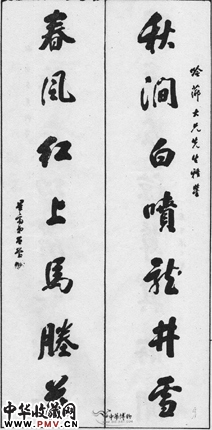 大兄先生
秋澗白噴龍井雪
春風紅上馬塍花
中华博物
中华收藏网
WWW.PMV.CN